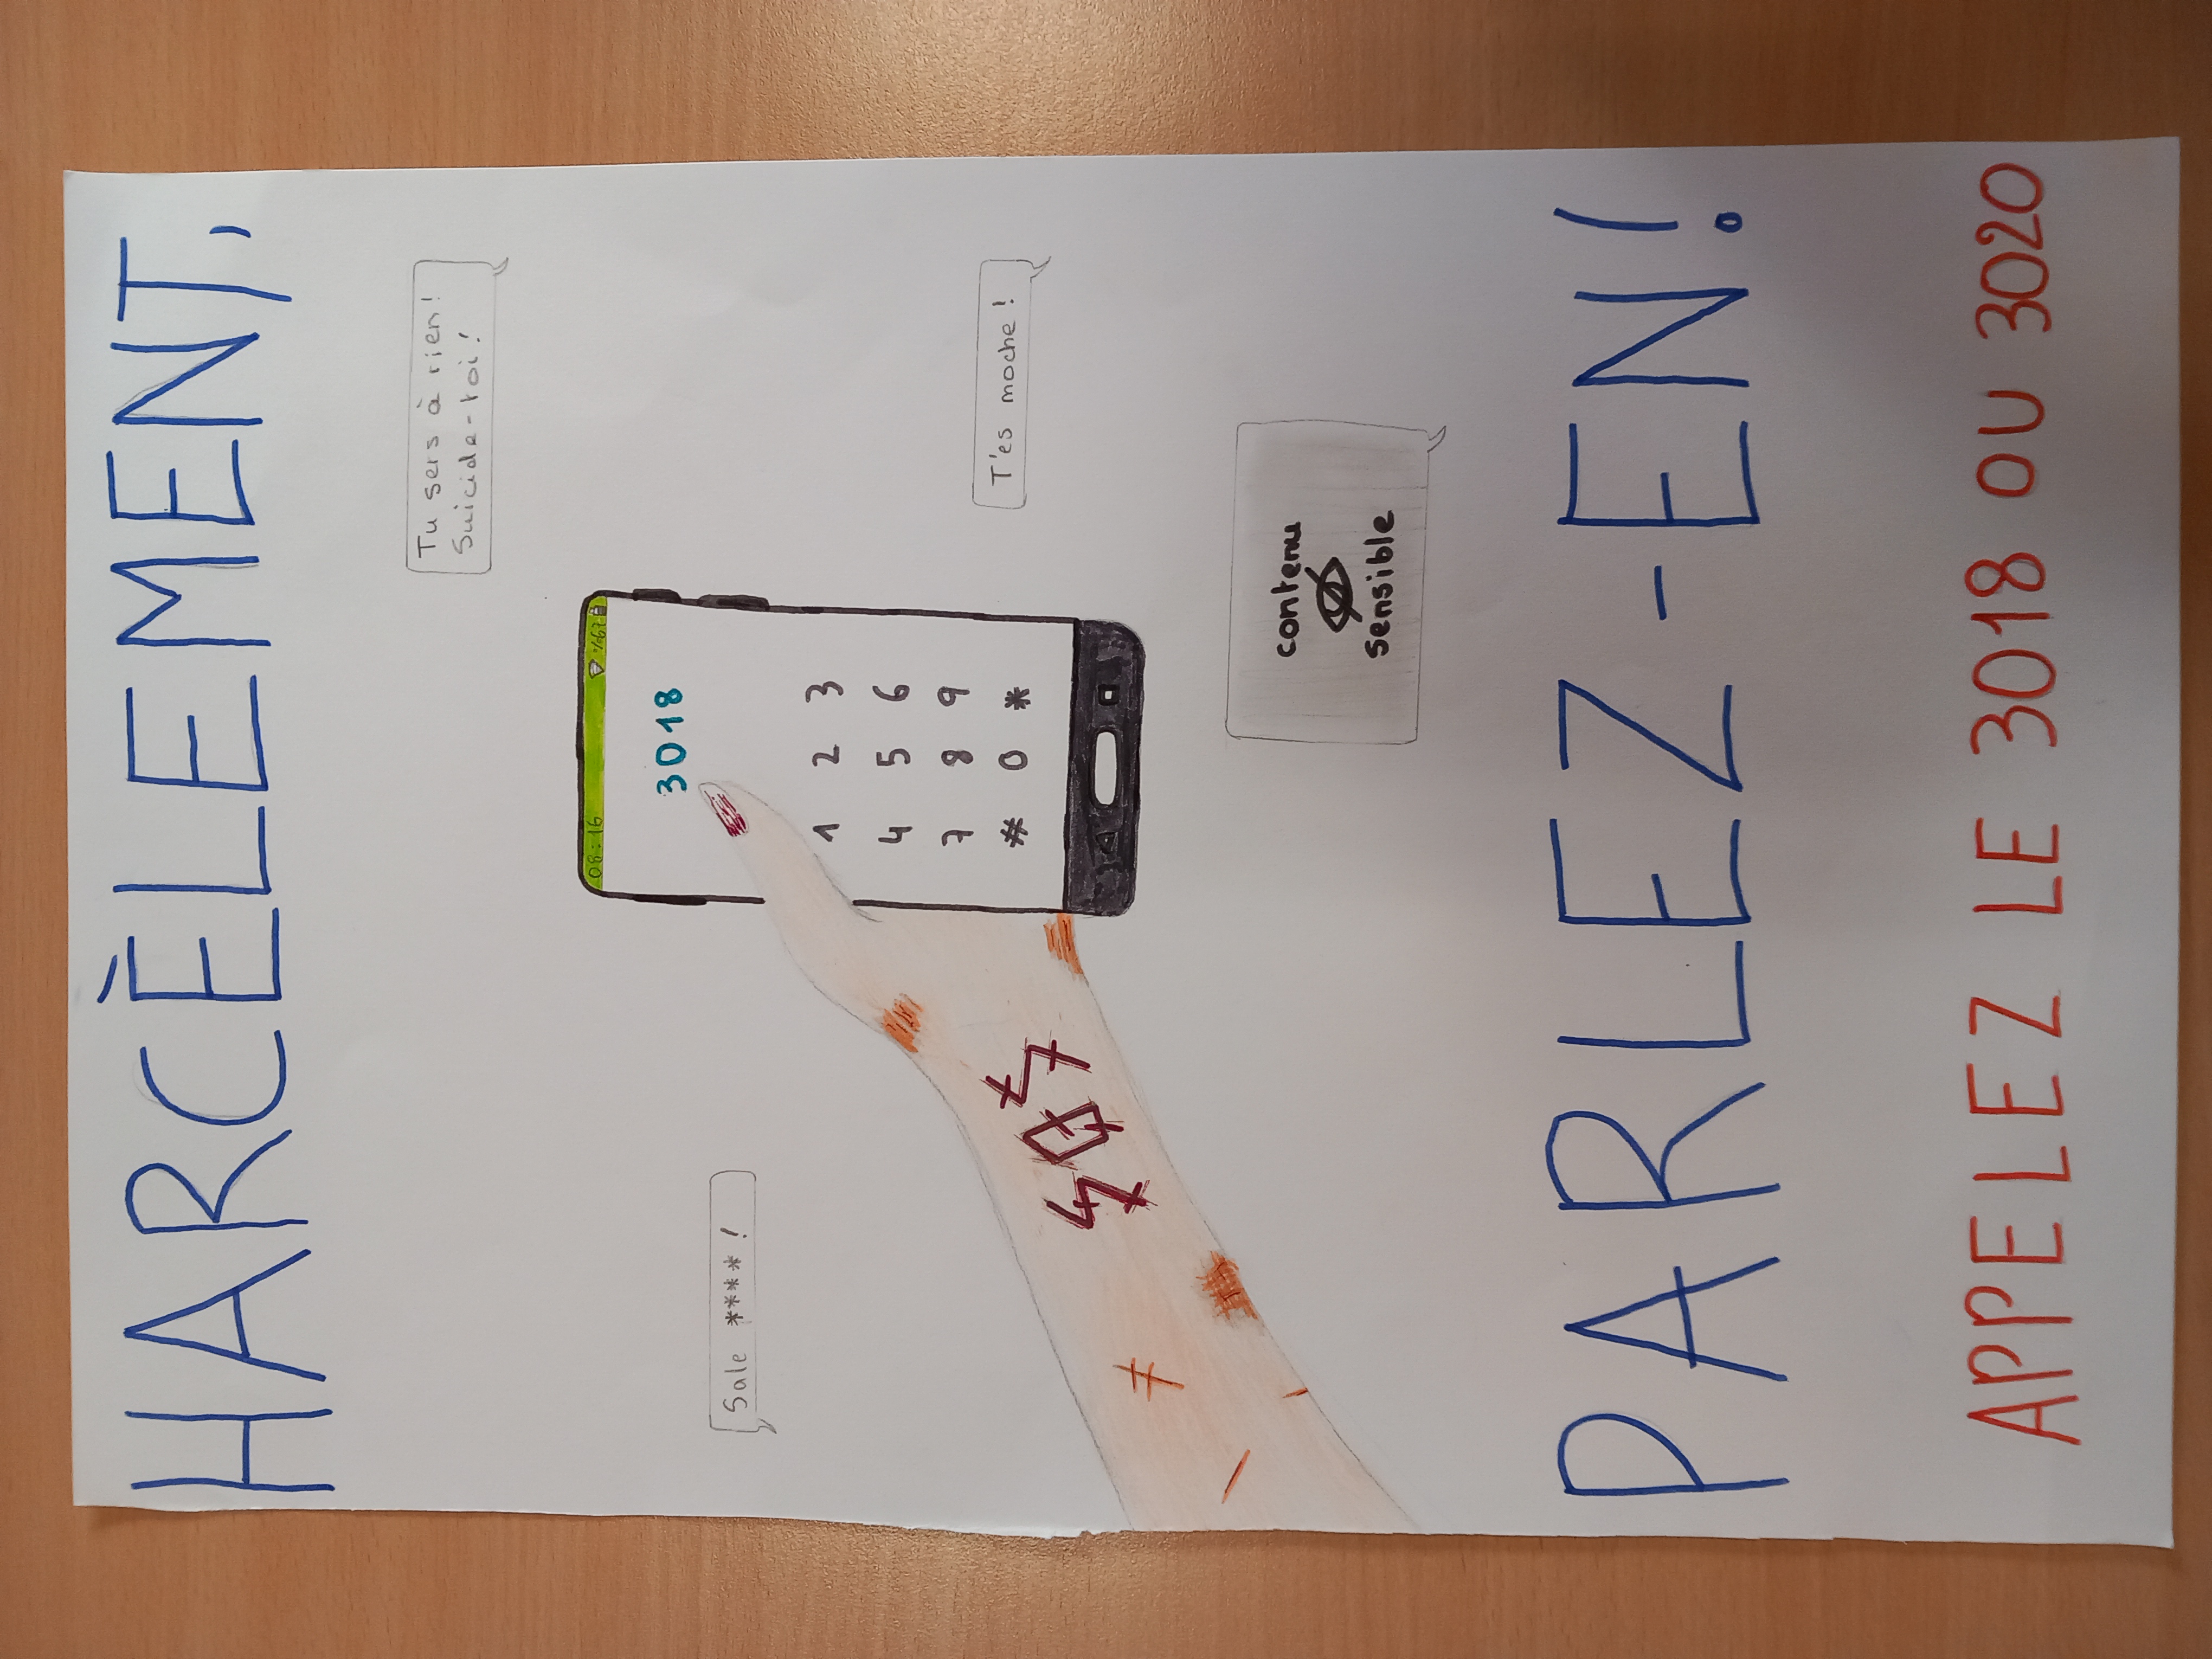 HARCÈLEMENT,
Tu sers à rien!
Suicide-toi!
08:16 %67
3018
Sale ****!
1 2 3
4 5 6
7 8 9
# 0 *
SOS
T'es moche!
contenu
sensible
PARLEZ-EN!
APPELEZ LE 3018 OU 3020